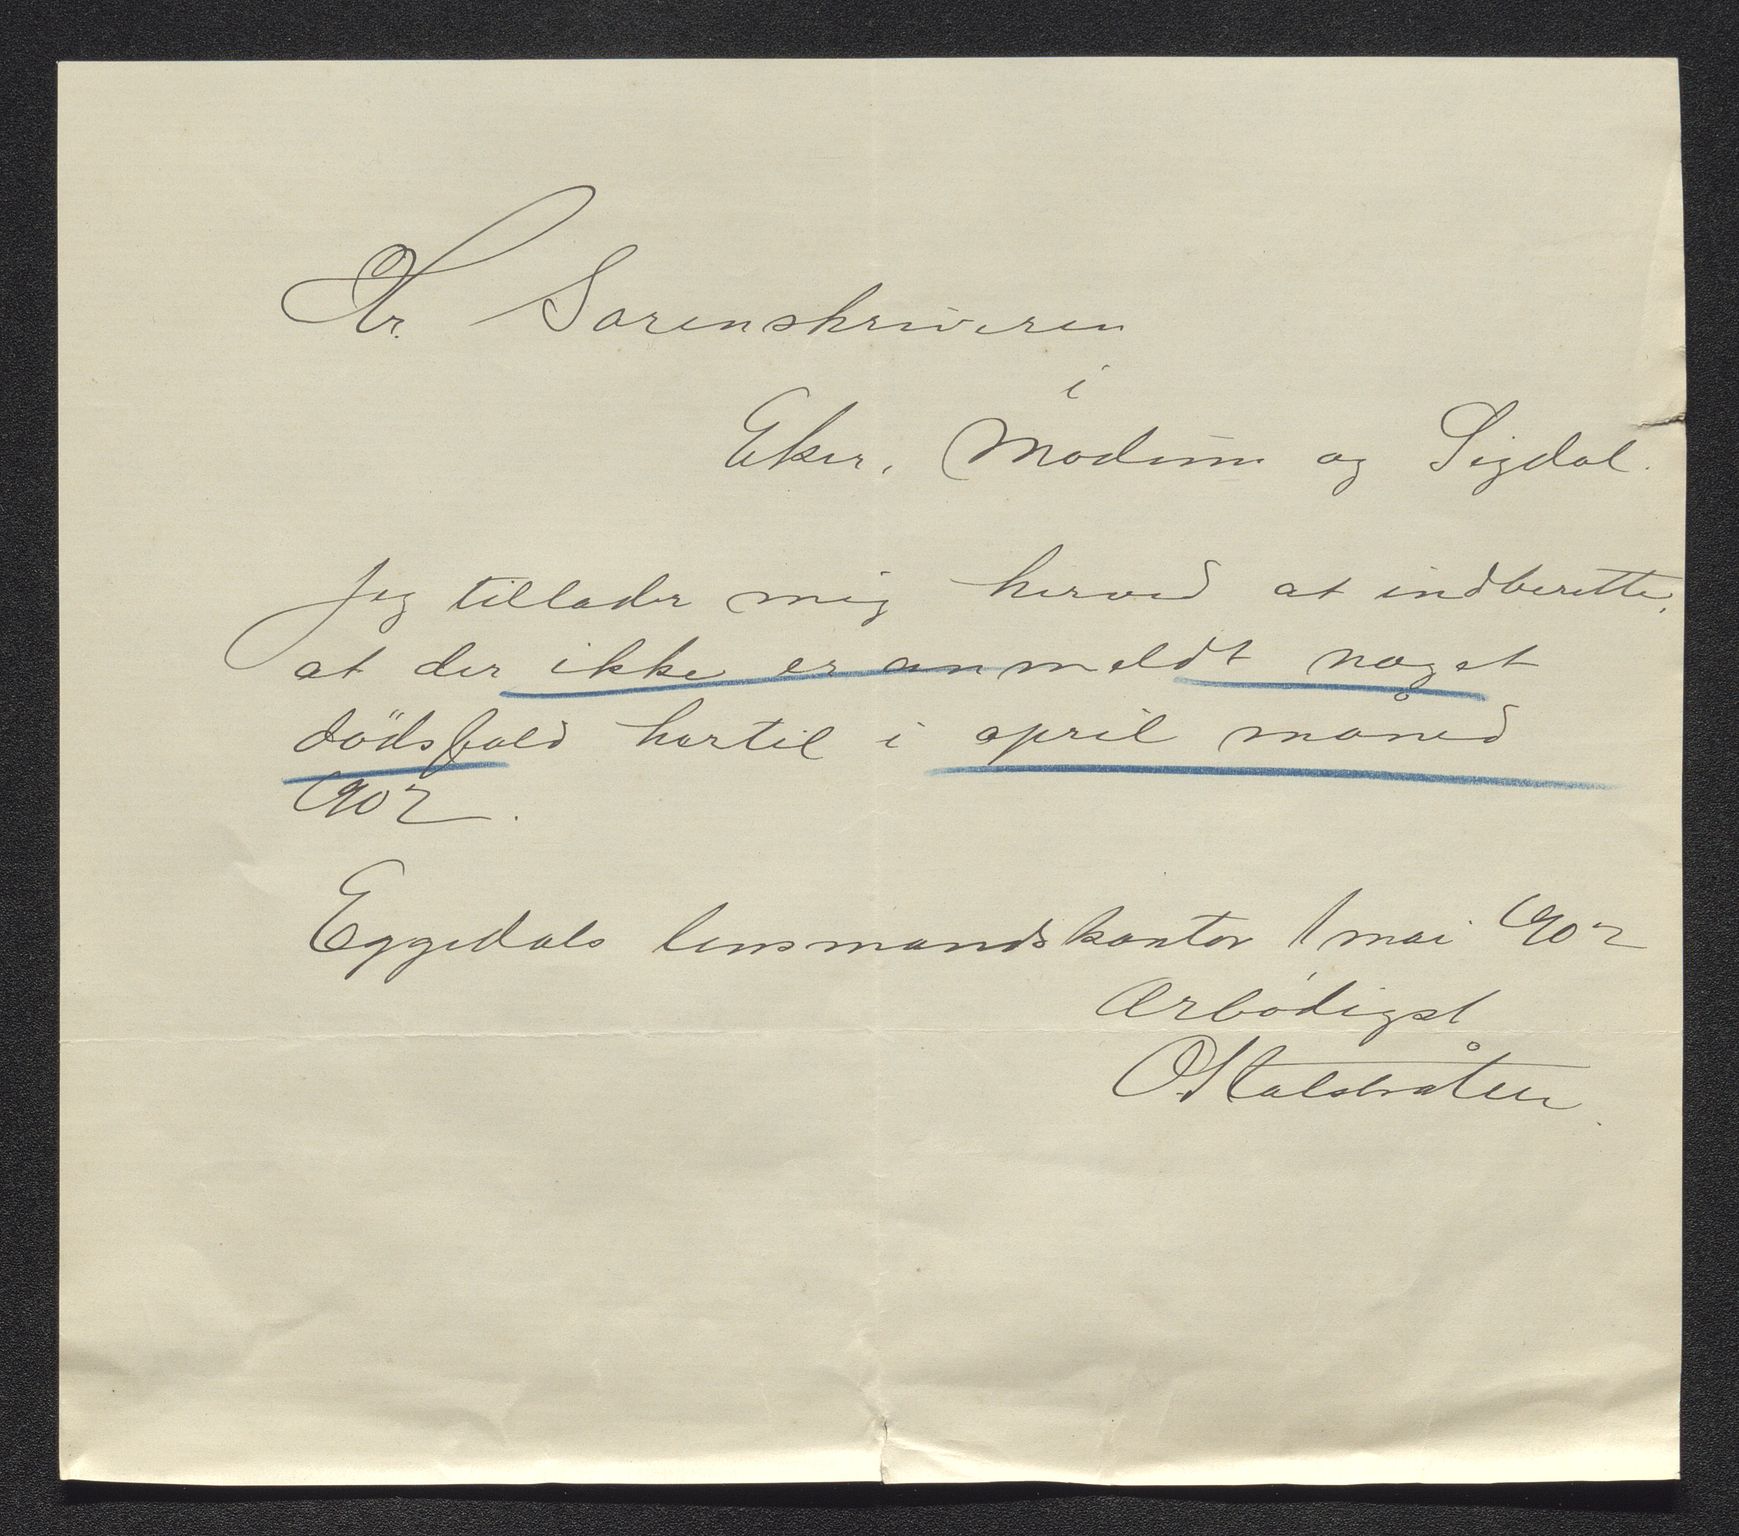 Hr. Sorenskriveren
i
Eker, Modum og Sigdal.
Jeg tillader mig herved at indberette,
at der ikke er anmeldt noget
dödsfald hertil i april måned
1902.
Eggedals lensmandskontor 1 mai 1902
Ærbödigst